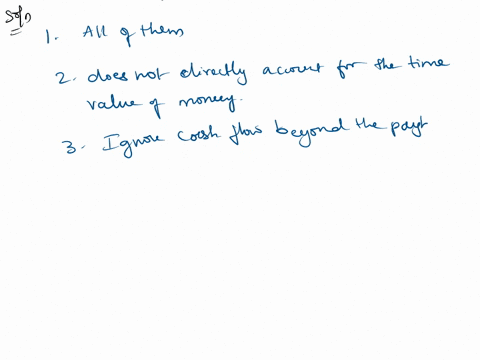 Soln
1. All of them
2. does not directly account for the time
value of money.
3. Ignore cash flow beyond the payb